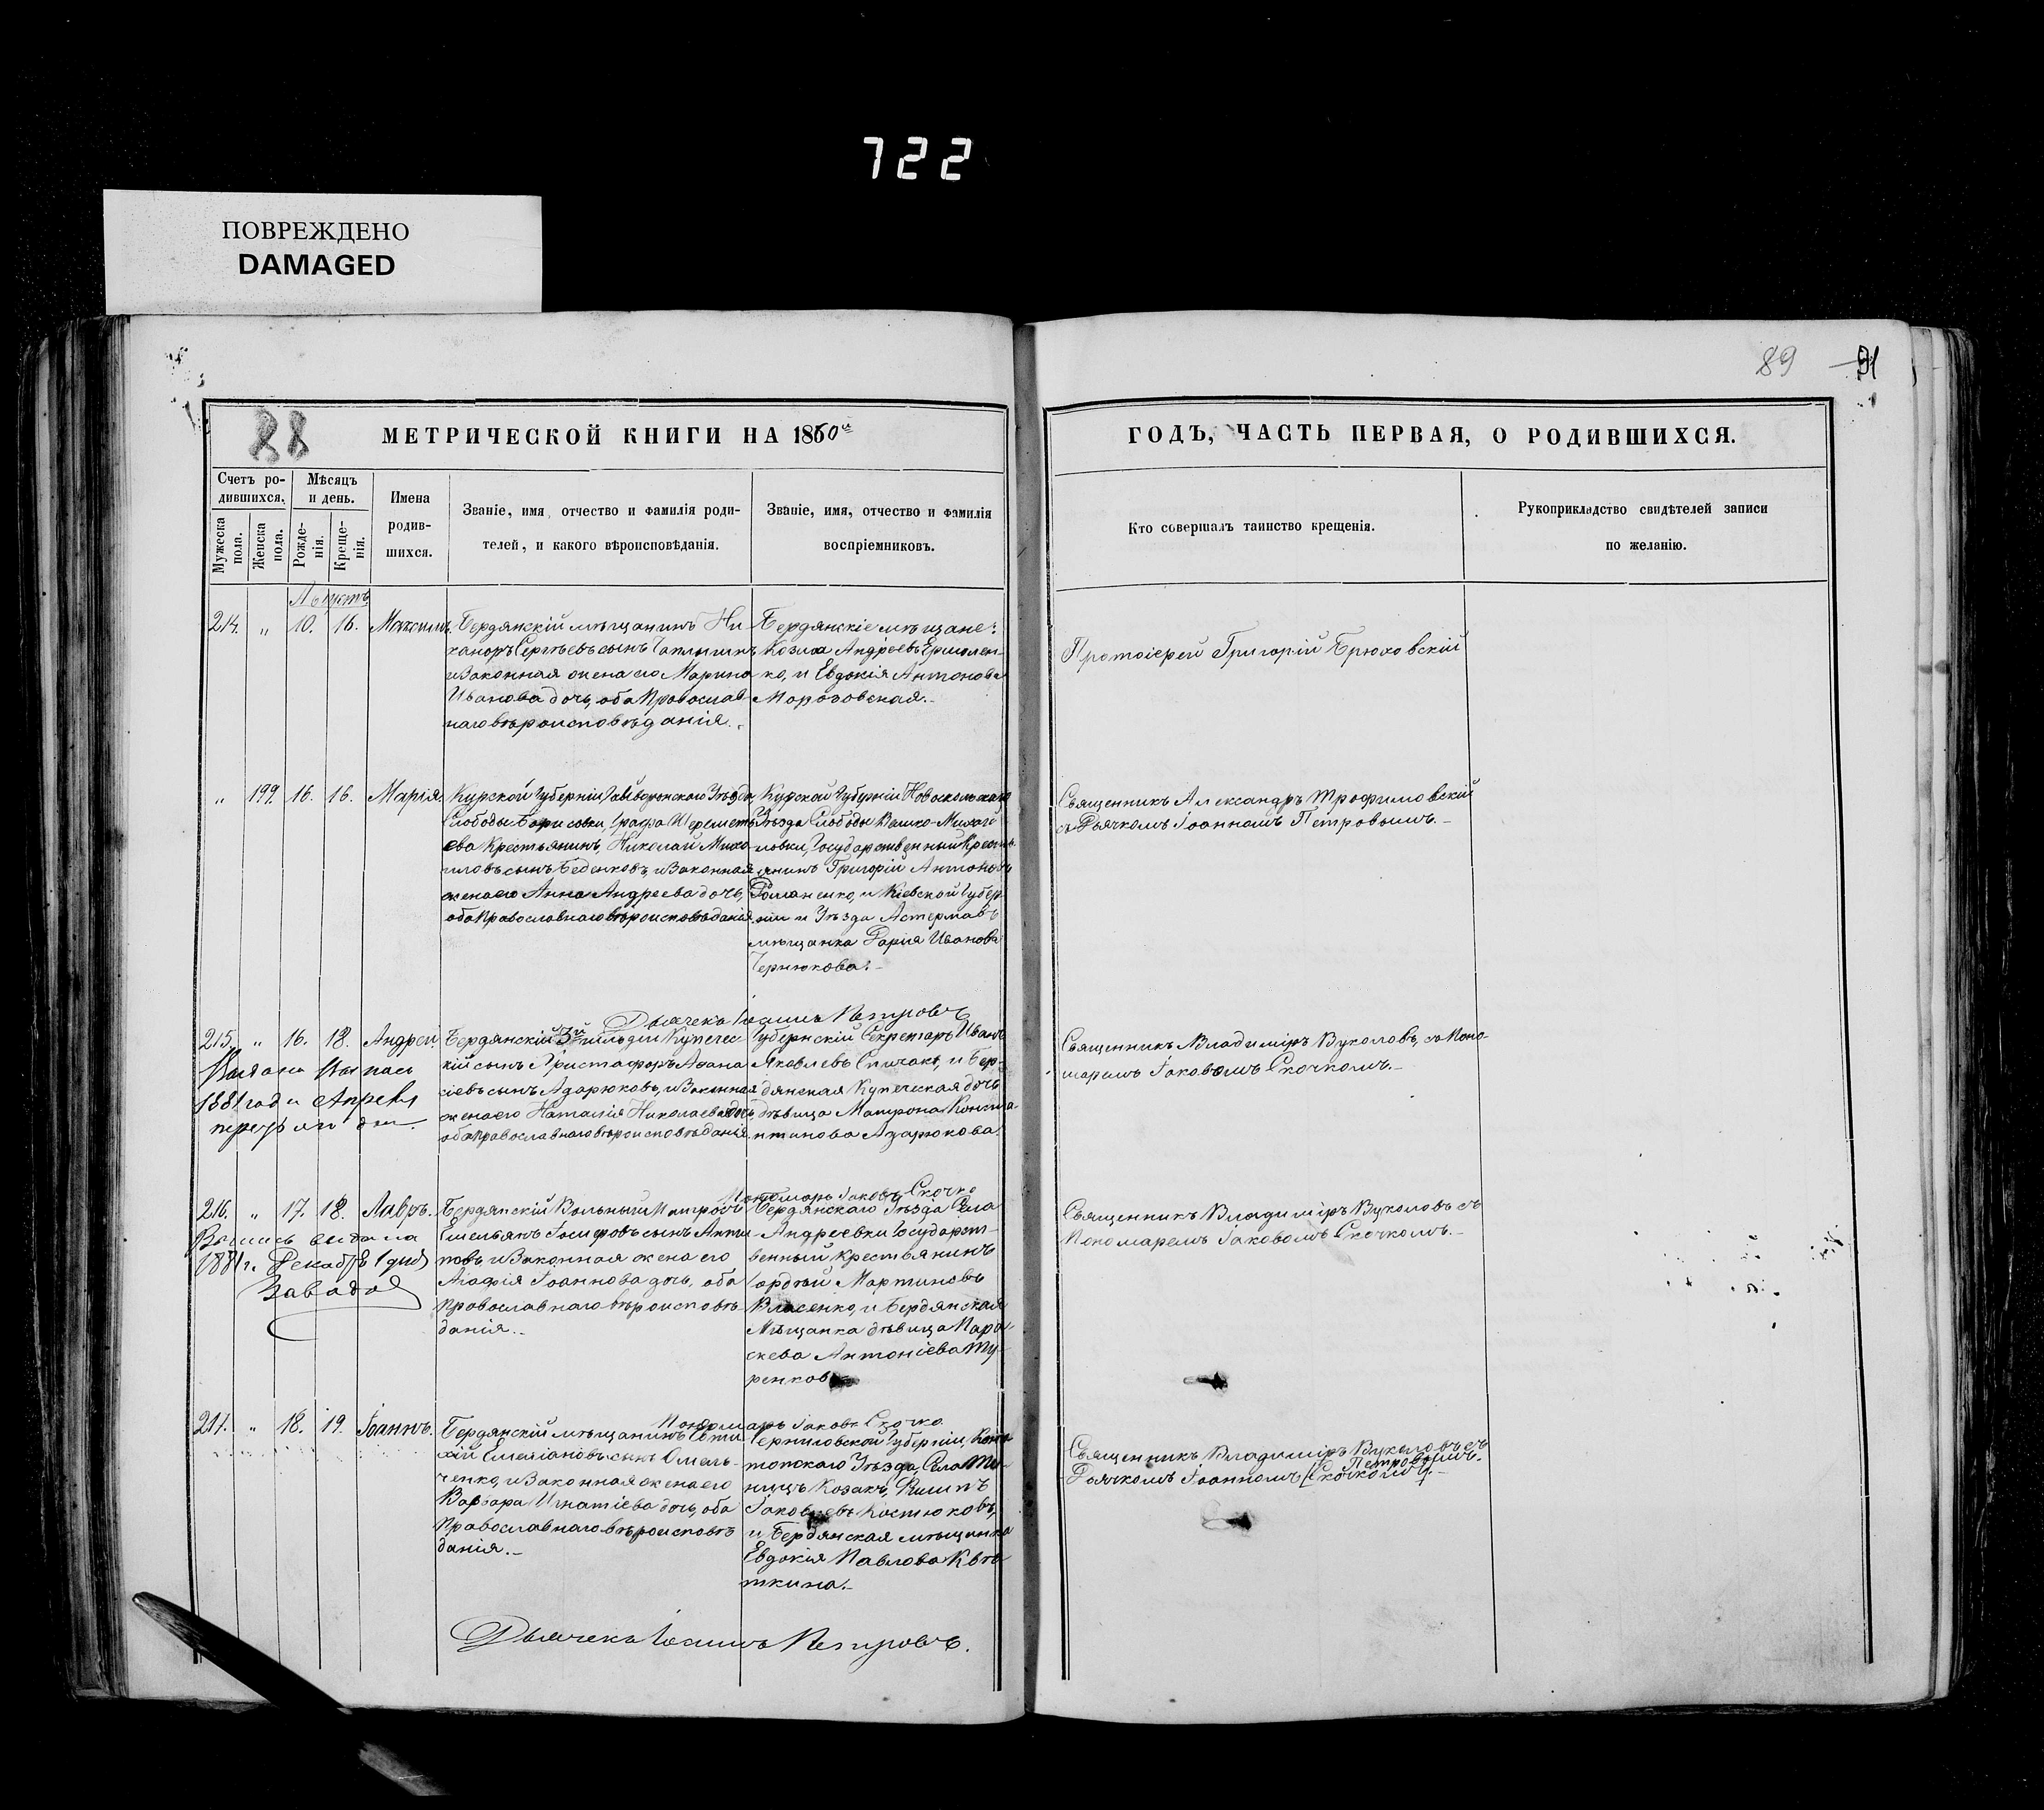 722
ПОВРЕЖДЕНО
DAMAGED
89 91
88
МЕТРИЧЕСКОЙ КНИГИ НА 1860й
ГОДЪ, ЧАСТЬ ПЕРВАЯ, О РОДИВШИХСЯ.
Счетъ ро-
дившихся.
Мужеска пола.
Женска пола.
Мѣсяцъ
и день.
Рожде-
нія.
Креще-
нія.
Имена
родив-
шихся.
Званіе, имя, отчество и фамилія роди-
телей, и какого вѣроисповѣданія.
Званіе, имя, отчество и фамилія
воспріемниковъ.
Кто совершалъ таинство крещенія.
Рукоприкладство свидѣтелей записи
по желанію.
Августъ
214. „ 10. 16. Максимъ.
Бердянскій мѣщанинъ Ни-
каноръ Сергѣевъ сынъ
и законная жена его Марина
Иванова дочь, оба православ-
наго вѣроисповѣданія.
Бердянскіе мѣщане:
Козма Андреевъ Ермолен-
ко, и Евдокія Антонова
Морозовская.
Протоіерей Григорій Брюховскій
„ 199. 16. 16. Марія.
Курской Губерніи, Грайворонскаго Уѣзда,
Слободы Борисовки, Графа Шереметь-
ева Крестьянинъ, Николай Миха-
иловъ сынъ Беденковъ, и законная
жена его Анна Андреева дочь,
оба православнаго вѣроисповѣданія.
Курской Губерніи Новоскольскаго
Уѣзда Слободы Велико-Михай-
ловки, Государственный Кресть-
янинъ Григорій Антоновъ
Романенко, и Кіевской Губер-
ніи и Уѣзда
мѣщанка Дарія Иванова
Чернюкова.
Священникъ Александръ Трофимовскій
съ Дьячкомъ Іоанномъ Петровымъ.
Дьячекъ Іоаннъ Петровъ
215. „ 16. 18. Андрей.
Бердянскій 3й гильдіи Купечес-
кій сынъ Христофоръ Афана-
сіевъ сынъ Адарюковъ, и законная
жена его Наталія Николаева дочь,
оба православнаго вѣроисповѣданія.
Губернскій Секретарь Иванъ
Яковлевъ Спичакъ, и Бер-
дянская Купеческая дочь
дѣвица Матрона Конста-
нтинова Адарюкова.
Священникъ Владиміръ Вуколовъ, съ Поно-
маремъ Іаковомъ Скочкомъ.
1881 года Апреля
Пономарь Іаковъ Скочко
216. „ 17. 18. Лавръ.
Бердянскій Вольный Матросъ
Емельянъ Іосифовъ сынъ Анти-
повъ, и законная жена его
Агафія Іоаннова дочь, оба
православнаго вѣроисповѣ-
данія.
Бердянскаго Уѣзда Села
Андреевки Государст-
венный крестьянинъ
Гордѣй Мартиновъ
Власенко, и Бердянская
Мѣщанка дѣвица Пара-
скева Антоніева Ту-
ренков
Священникъ Владиміръ Вуколовъ съ
Пономаремъ Іаковомъ Скочкомъ.
1881 г. Декабря 1 дня
Пономарь Іаковъ Скочко
217. „ 18. 19. Іоаннъ.
Бердянскій мѣщанинъ Евти-
хій Емеліановъ сынъ Омель-
ченко, и законная жена его
Варвара Игнатіева дочь, оба
православнаго вѣроисповѣ-
данія.
Черниговской Губерніи, Коно-
топскаго Уѣзда, Села
Козакъ, Филипъ
Іаковлевъ Костюковъ,
и Бердянская мѣщанка
Евдокія Павлова Квѣ-
ткина.
Священникъ Владиміръ Вуколовъ съ
Петровымъ.
Дьячкомъ Іоанномъ [Скочкомъ].
Дьячекъ Іоаннъ Петровъ.